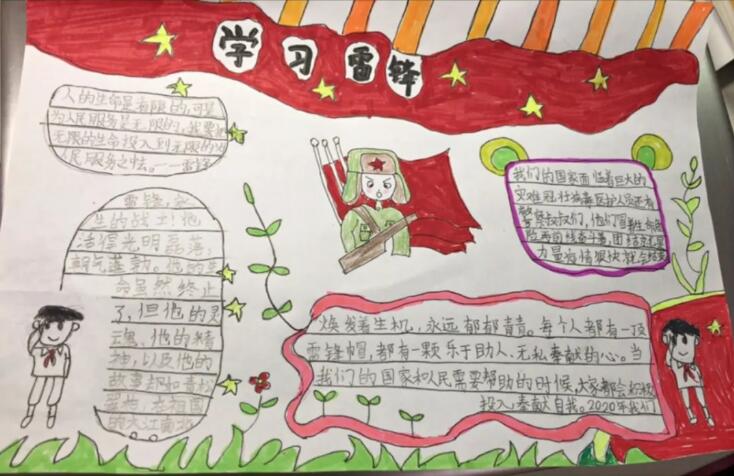 学习雷锋
人的生命是有限的,可是
为人民服务是无限的,我要把
无限的生命投入到无限的为
人民服务之中去。——雷锋
雷锋,永
生的战士!他
活得光明磊落,
朝气蓬勃。他的生
命虽然终止
了,但他的灵
魂、他的精
神,以及他的
故事却和青松
翠柏,在祖国
的大江南北
我们的国家面临着巨大的
灾难冠状病毒医护人员还有
警察叔叔们,他们冒着生命危
险再前线奋斗着,团结就是
力量疫情很快就会结束
焕发着生机,永远郁郁青青。每个人都有一顶
雷锋帽,都有一颗乐于助人、无私奉献的心。当
我们的国家和人民需要帮助的时候,大家都会积极
投入,奉献自我。2020年我们